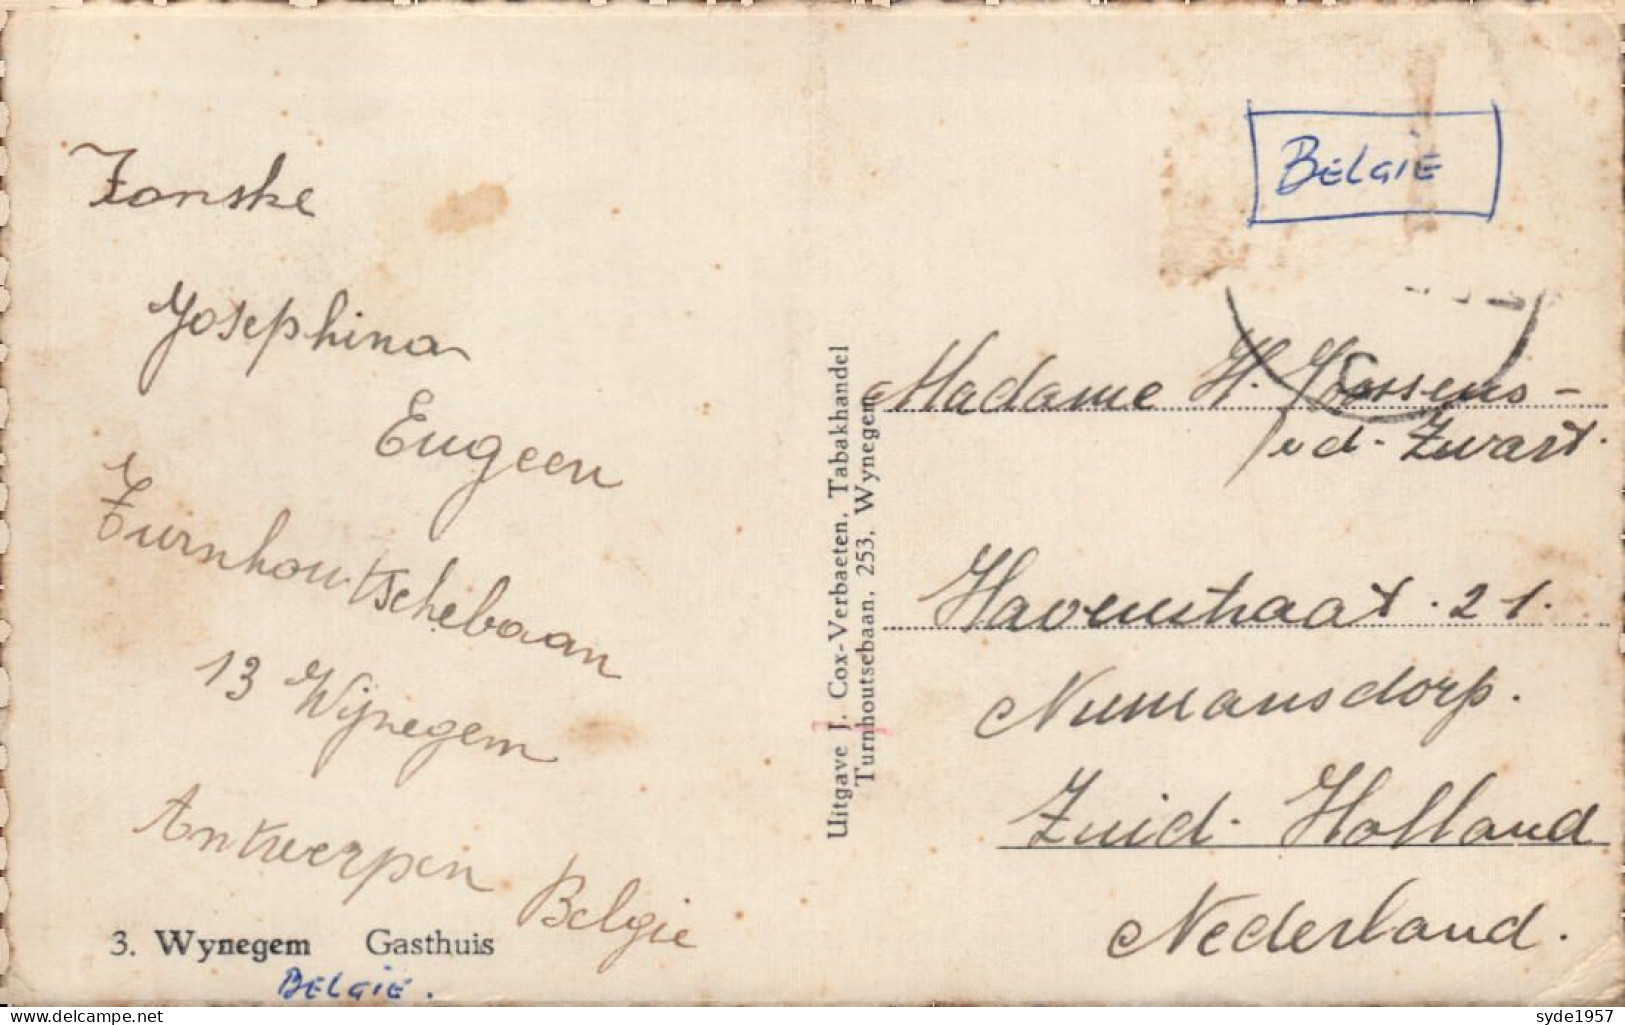 Josephina
Eugeen
Turnhoutschebaan
13 Wijnegem
Antwerpen
België
3. Wynegem Gasthuis
BELGIË.
Uitgave J. Cox-Verbaeten, Tabakhandel
Turnhoutsebaan, 253, Wynegem
BELGIË
Madame H.
vd. Zwart.
Havenstraat. 21.
Numansdorp.
Zuid. Holland
Nederland.
syde1957